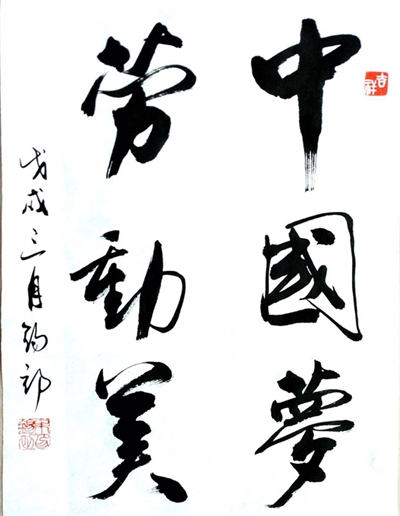 中國夢
劳動美
戊戌三月錫祁
吉祥